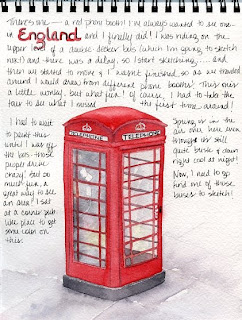 There's one — a red phone booth! I've always wanted to see one
in England and I finally did! I was riding on the
upper level of a double decker bus (which I'm going to sketch
next) and there was a delay, so I start sketching.... and
then we started to move & I wasn't finished, so as we traveled
around I would draw from different phone booths! This one's
a little wonky, but what fun! Of course, I had to take the
tour to see what I missed the first time around!
I had to wait
to paint this
until I was off
the bus. those
people drive
crazy! but so
much fun, a
great way to see
an area! I sat
at a corner pub
like place to get
some color on
this.
TELEPHONE
TELEPHONE
Spring is in
the air over here even
though it's still
quite brisk & down
right cool at night!
Now, I need to go
find one of those
buses to sketch!